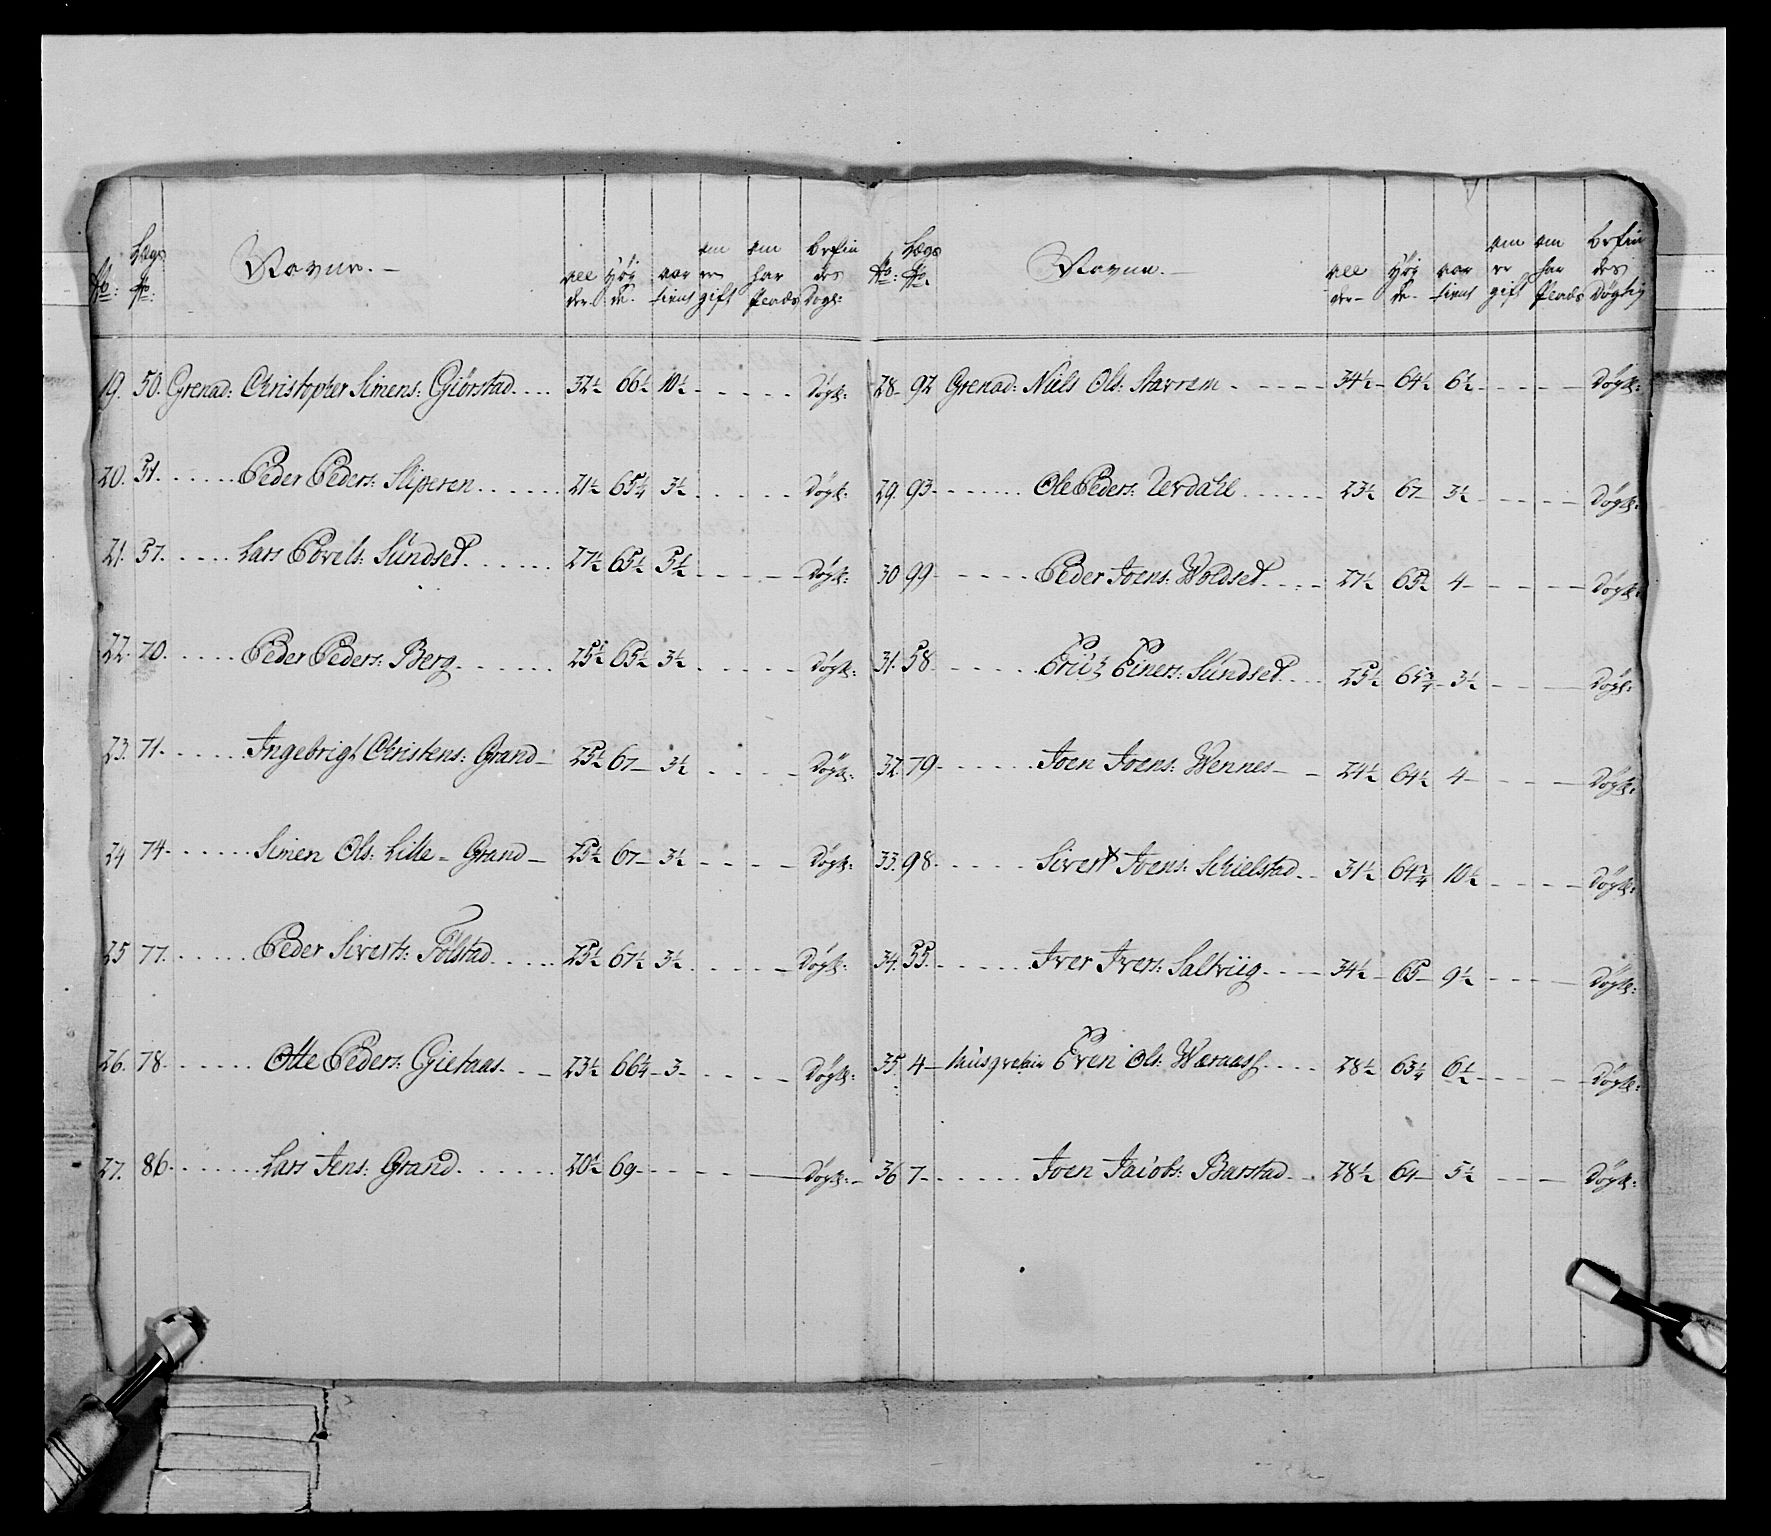 No: Lægs No: Navne. — all der. Høÿ de. aar tient om er gift om har Plads befin des Døgl:
19. 50. Grenad: Christopher Simens: Giörstad.... 32½ 66½ 10½ - - - - - Døgl:
20. 51. ..... Peder Peders: Sliperen...... 21½ 65¼ 3½ - - - - - Døgl:
21. 57. .... Lars Povels: Sundset...... 27½ 65½ 5½ - - - - Døgl:
22. 70. .... Peder Peders: Berg...... 25½ 65½ 3½ - - - - - Døgl:
23. 71. .... Ingebrigt Christens: Grand— 25½ 67— 3½ - - - - Døgl:
24 74. ..... Simen Ols: Lille - Grand— 25½ 67— 3½ - - - - Døgl:
25 77. ..... Peder Siverts: Fölstad..... 25½ 67½ 3½ - - - - - Døgl:
26. 78. ..... Otte Peders: Gietaas... 23½ 66¼ 3 - - - - Døgl:
27. 86. ...... Lars Jens: Grand...... 20½ 69 - - - - - Døgl:
No: Lægs No. Navne. — all der— Høÿ de. aar tient om er gift om har Plads befin des Døgtig
28. 92 Grenad: Niels Ols: Stavrem - - - - - 34½ 64½ 6½ - - - - Døgl:
29. 93. ...... Ole Peders: Uerdahl...... 23½ 67 3½ - - - - Døgl:
30 99 ..... Peder Joens: Woldset.... 27½ 65½ 4 - - - - Døgl:
31. 58. ..... Erich Einers: Sundset... 25½ 65¾ 3½ - - - - Døgl:
32. 79. ..... Joen Joens: Wennes - - 24½ 64½ 4 - - - - Døgl:
33. 98. ..... Sivert Joens: Schielstad.. 31½ 64¾ 10½ - - - - Døgl:
34. 55. ..... Iver Ivers: Saltviig.... 34½ 65 9½ - - - - Døgl:
35. 4 — Musqvetair Even Ols: Wæraas .... 28½ 63¼ 6½ - - - - Døgl:
36 7 ..... Joen Jacobs: Barstad.. 28½ 64 5½ - - - Døgl: